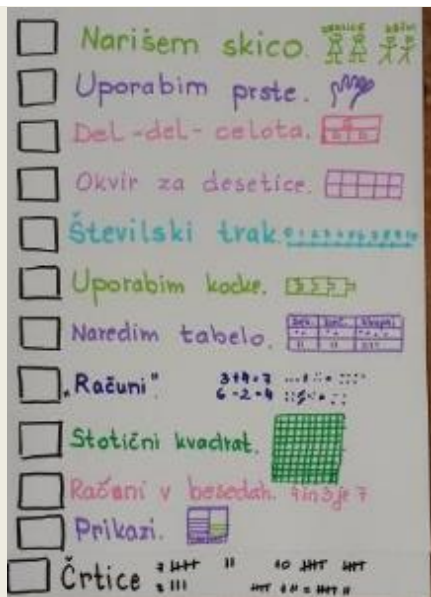 Narišem skico.
Uporabim prste.
Del-del-celota.
Okvir za desetice.
Številski trak.
Uporabim kocke.
Naredim tabelo.
„Računi“. 3+4=7
6-2=4
Stotični kvadrat.
Računi v besedah. 4 in 3 je 7
Prikazi.
Črtice